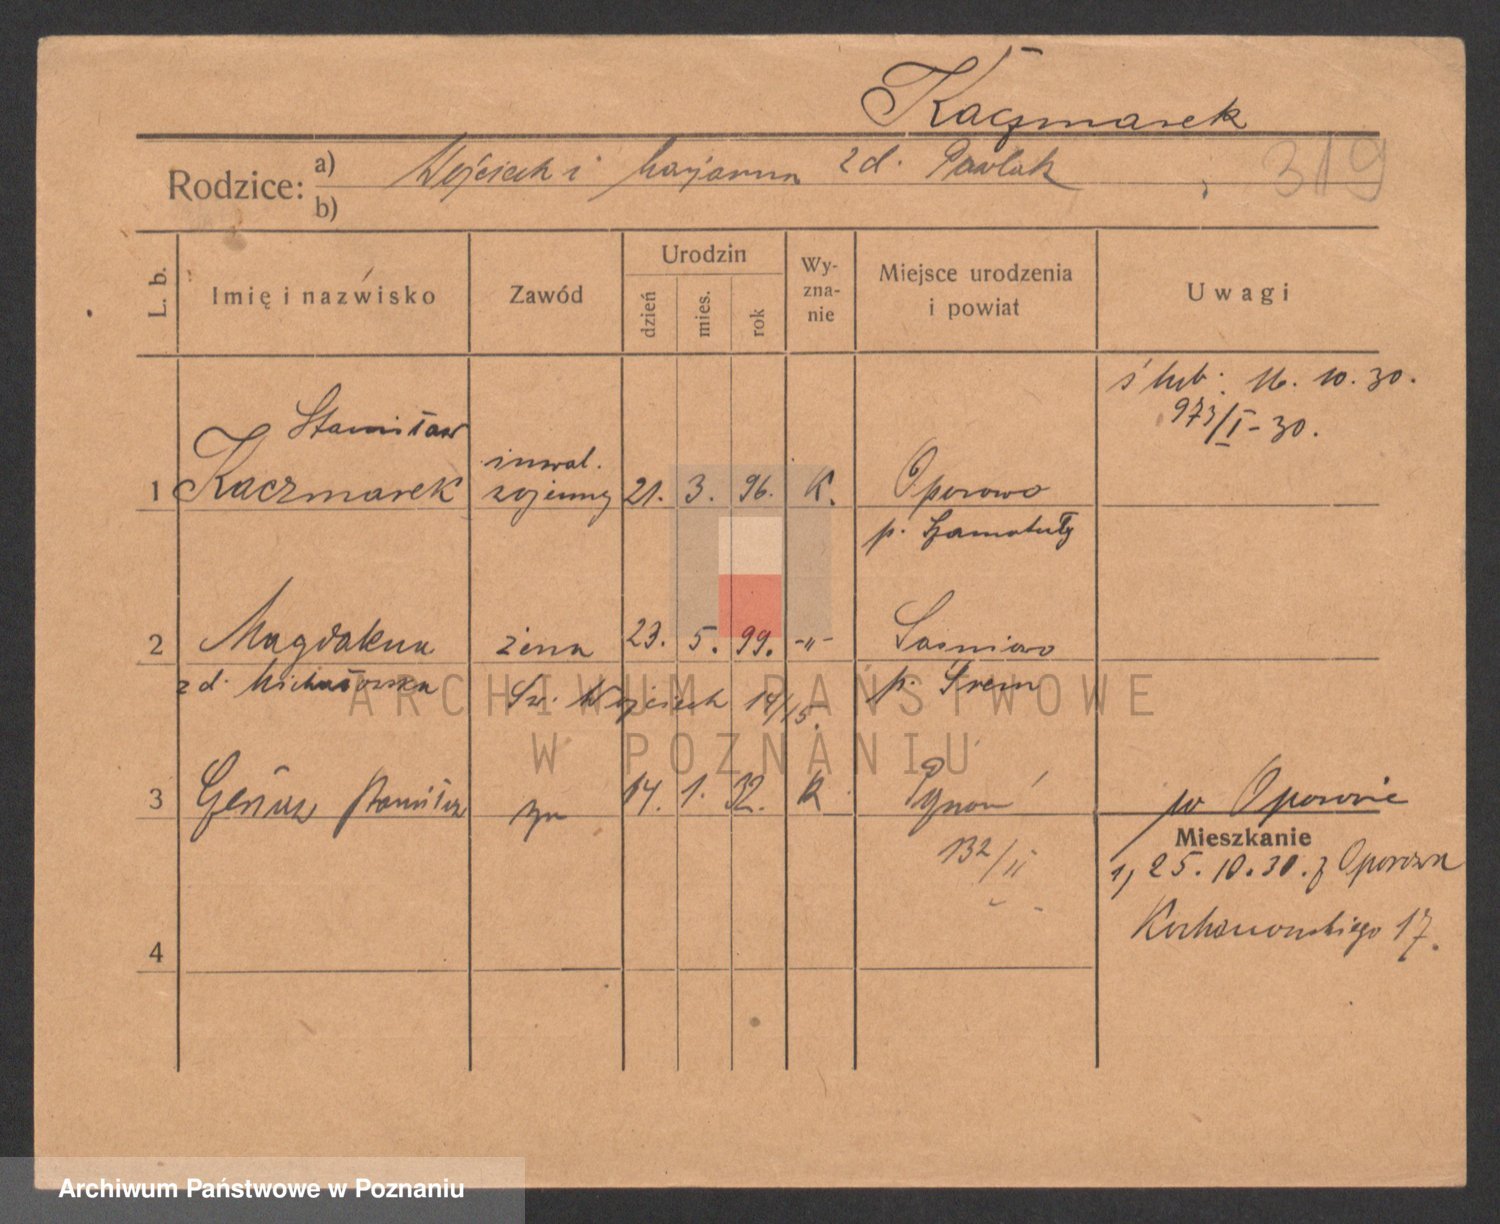 Kaczmarek
Rodzice: a) Wojciech i Marjanna zd. Pawlak
b)
319
L. b.
Imię i nazwisko
Zawód
Urodzin
dzień
mies.
rok
Wy-
zna-
nie
Miejsce urodzenia
i powiat
Uwagi
ślub. 16. 10. 30.
973/I-30.
Stanisław
inwal.
1 Kaczmarek wojenny 21. 3. 96. K. Oporowo
p. Szamotuły
2 Magdalena żena 23. 5. 99. -"-
zd. Michałowska Św. Wojciech 14/15. p. Śrem
3 Stanisław syn 14. 1. 32. K
w Oporowie
132/II
Mieszkanie
1, 25. 10. 30. z Oporowa
Kochanowskiego 17.
4
ARCHIWUM PAŃSTWOWE
W POZNANIU
Archiwum Państwowe w Poznaniu